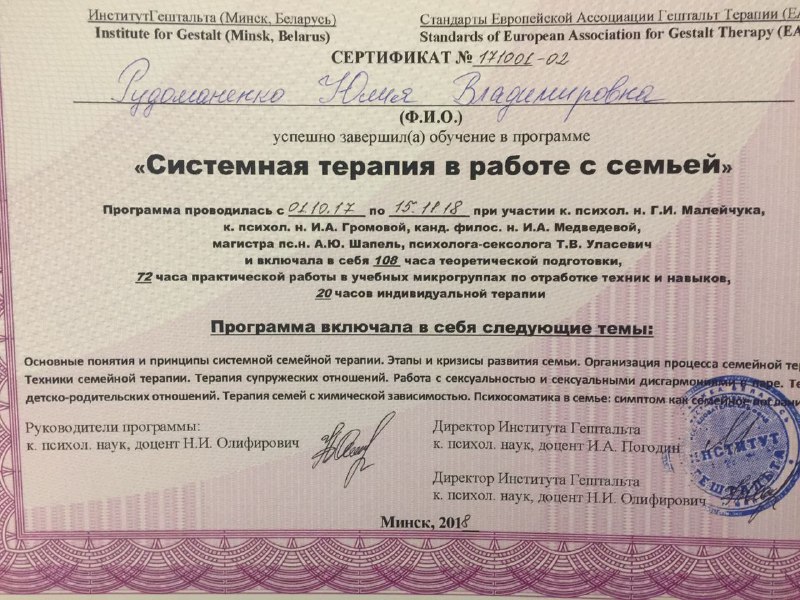 ИнститутГештальта (Минск, Беларусь)
Institute for Gestalt (Minsk, Belarus)
Стандарты Европейской Ассоциации Гештальт Терапии (EA
Standards of European Association for Gestalt Therapy (EA
СЕРТИФИКАТ № 171001-02
Рудоманенко Юлия Владимировна
(Ф.И.О.)
успешно завершил(а) обучение в программе
«Системная терапия в работе с семьей»
Программа проводилась с 01.10.17 по 15.11.18 при участии к. психол. н. Г.И. Малейчука,
к. психол. н. И.А. Громовой, канд. филос. н. И.А. Медведевой,
магистра пс.н. А.Ю. Шапель, психолога-сексолога Т.В. Уласевич
и включала в себя 108 часа теоретической подготовки,
72 часа практической работы в учебных микрогруппах по отработке техник и навыков,
20 часов индивидуальной терапии
Программа включала в себя следующие темы:
Основные понятия и принципы системной семейной терапии. Этапы и кризисы развития семьи. Организация процесса семейной тер
Техники семейной терапии. Терапия супружеских отношений. Работа с сексуальностью и сексуальными дисгармониями в паре. Те
детско-родительских отношений. Терапия семей с химической зависимостью. Психосоматика в семье: симптом как семейное
Руководители программы:
к. психол. наук, доцент Н.И. Олифирович
Директор Института Гештальта
к. психол. наук, доцент И.А. Погодин
Директор Института Гештальта
к. психол. наук, доцент Н.И. Олифирович
ИНСТИТУТ
ГЕШТАЛЬТА
Минск, 2018